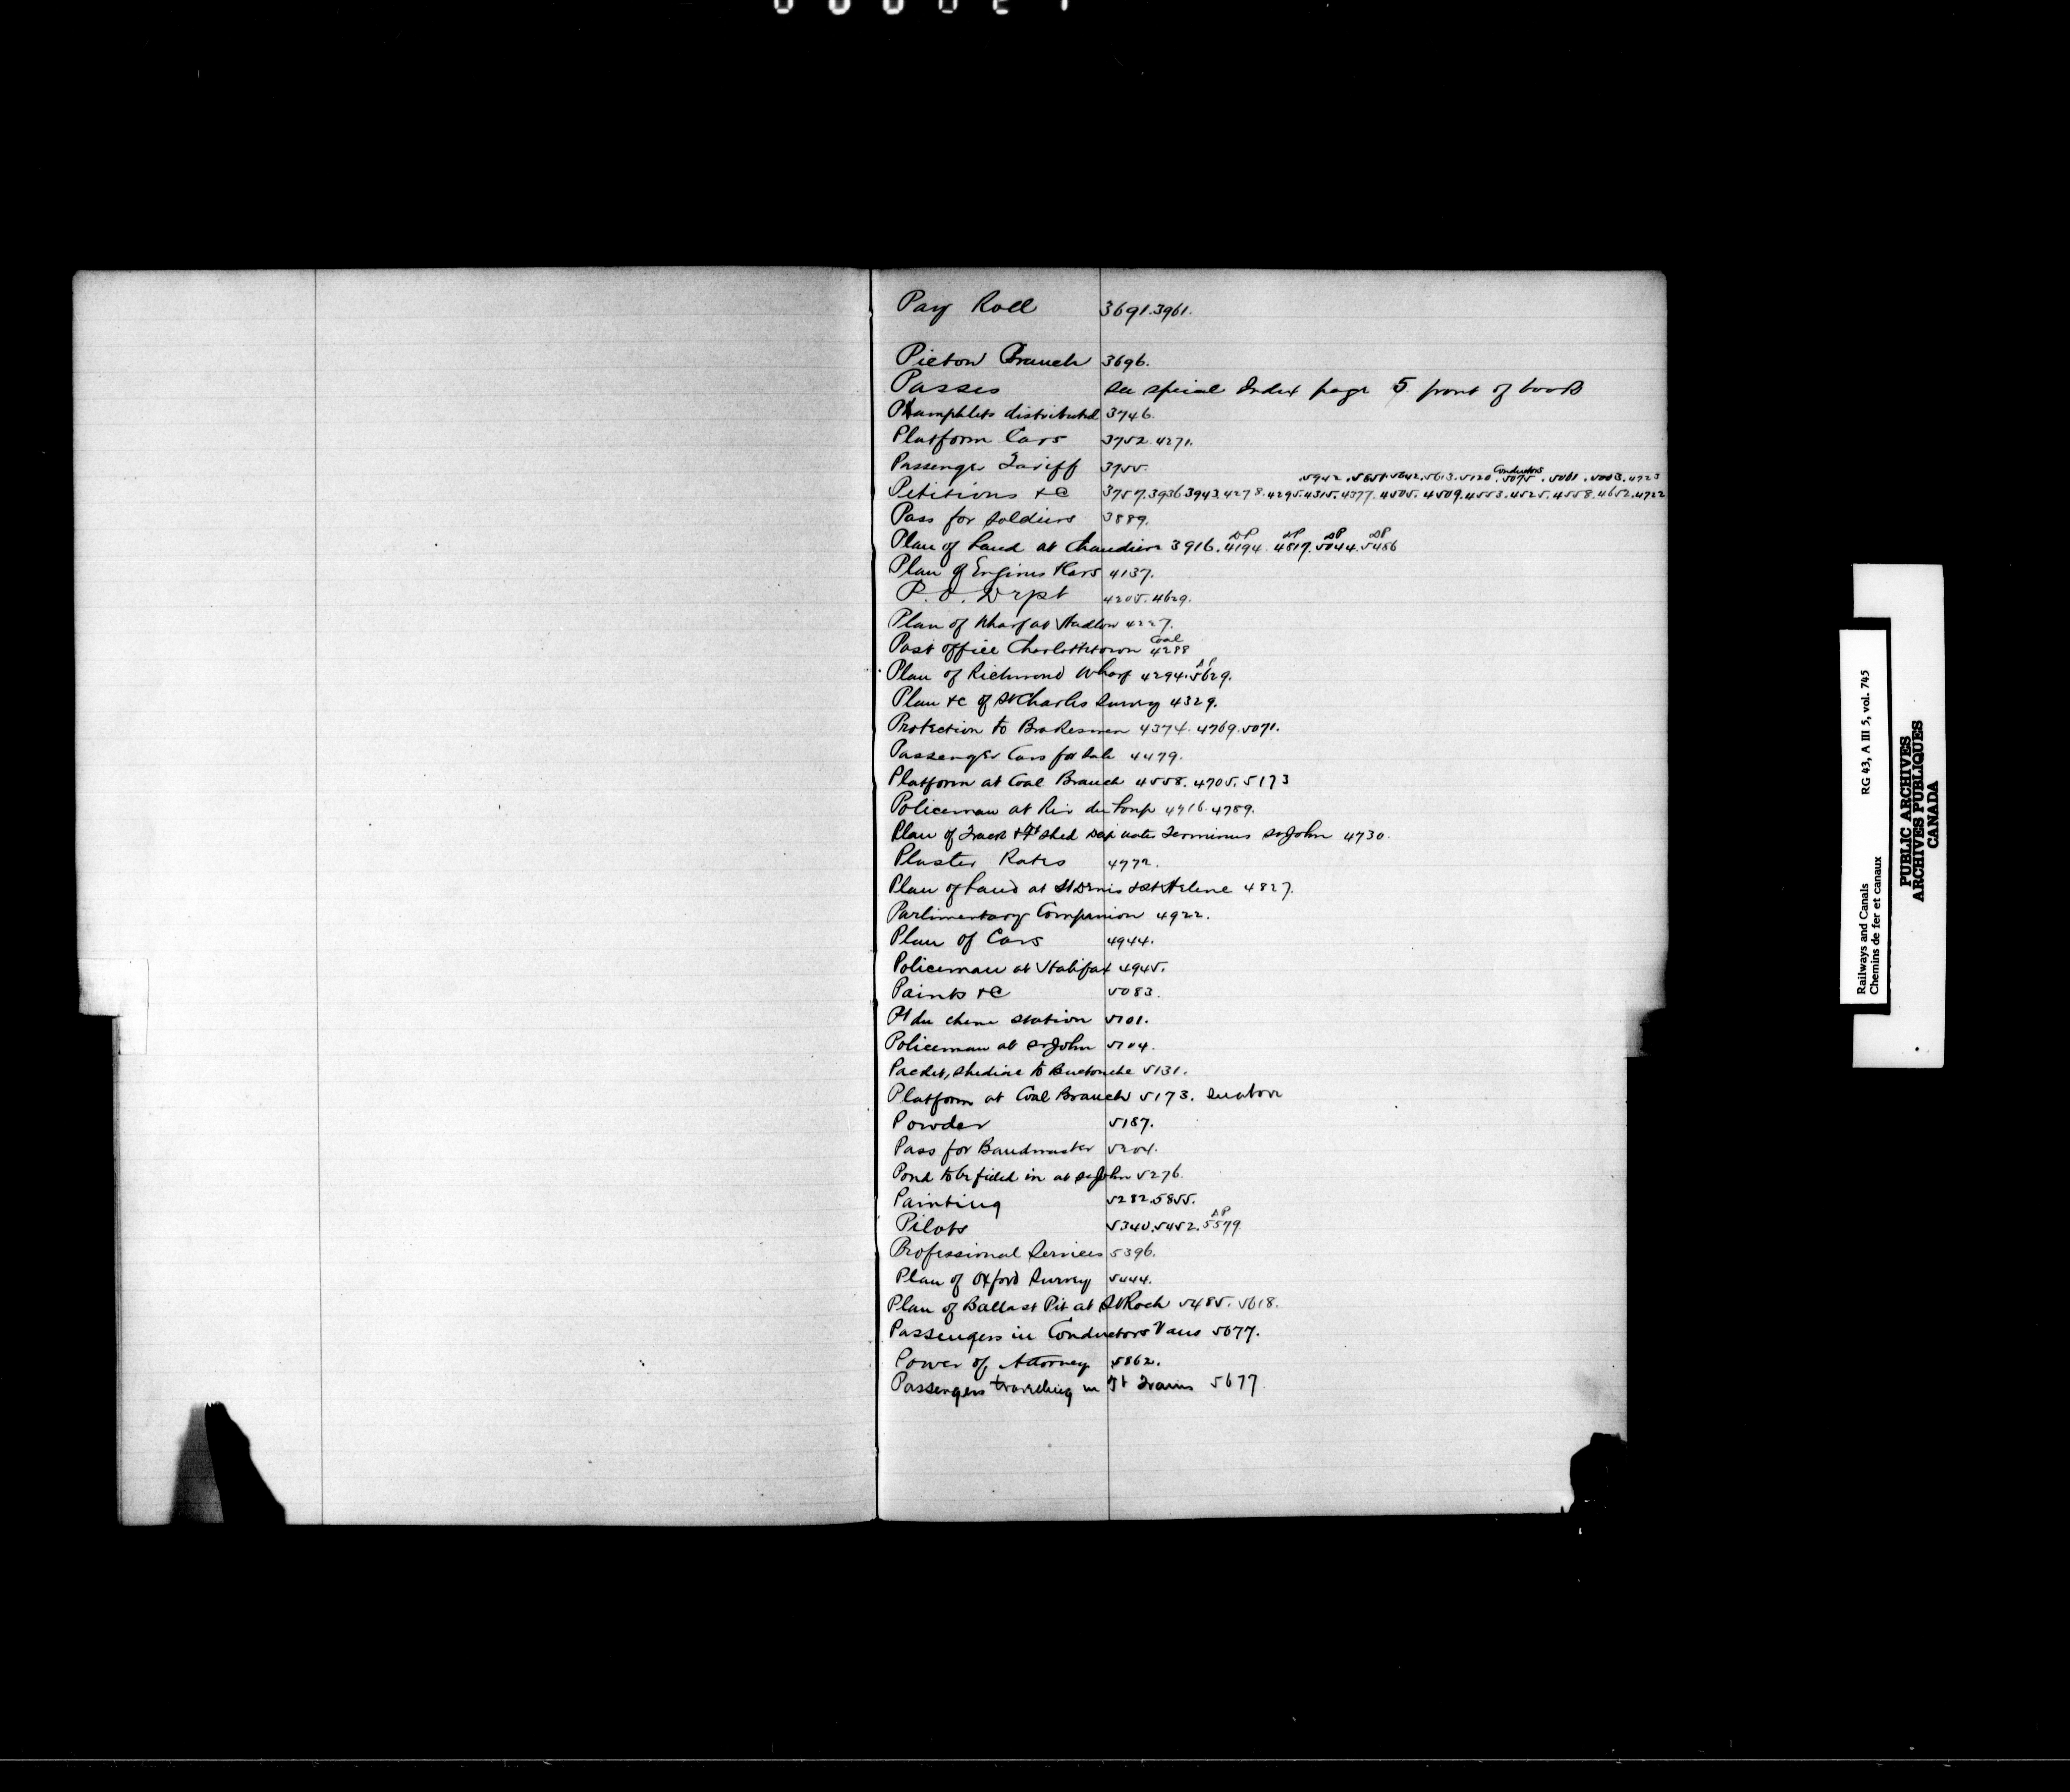 Pay Roll 3691.3961.
Pictou Branch 3696.
Passes See special Index page 5 front of book
Pamphlets distributed 3746.
Platform Cars 3752.4271.
Passenger Tariff 3755.
.5942..5642.5613.5120. Conductors 5075.5061.5003.4723
Petitions &c 3757.3936.3943.4278.4295.4315.4377.4505.4509.4553.4525.4558.4652.4722
Pass for Soldiers 3889.
Plan of Land at Chaudiere 3916. DP 4194. DP 4817. DP 5044. DP 5486
Plan of Engines & Cars 4137.
P.O. Dept 4205.4629.
Plan of Wharf at Hadlow 4227.
Post office Charlottetown Coal 4288
Plan of Richmond Wharf 4294. DP 5629.
Plan &c of St Charles Survey 4329.
Protection to Brakesmen 4374.4769.5071.
Passenger Cars for Sale 4479.
Platform at Coal Branch 4558.4705.5173
Policeman at Riv du Loup 4716.4789.
Plan of Track & Ft Shed Deep water Terminus St John 4730.
Plaster Rates 4772.
Plan of Land at St Denis & St Helene 4827.
Parlimentary Companion 4922.
Plan of Cars 4944.
Policeman at Halifax 4945.
Paints &c 5083.
Pt du chene station 5101.
Policeman at St John 5104.
Packet, Shediac to Buctouche 5131.
Platform at Coal Branch 5173.
Powder 5187.
Pass for Bandmaster 5204.
Pond to be filled in at St John 5276.
Painting 5282.5855.
Pilots 5340.5452. DP 5579.
Professional Services 5396.
Plan of Oxford Survey 5444.
Plan of Ballast Pit at St Roch 5485.5618.
Passengers in Conductors Vans 5677.
Power of Attorney 5862.
Passengers travelling in Ft Trains 5677.
Railways and Canals RG 43, A III 5, vol. 745
Chemins de fer et canaux
PUBLIC ARCHIVES
ARCHIVES PUBLIQUES
CANADA